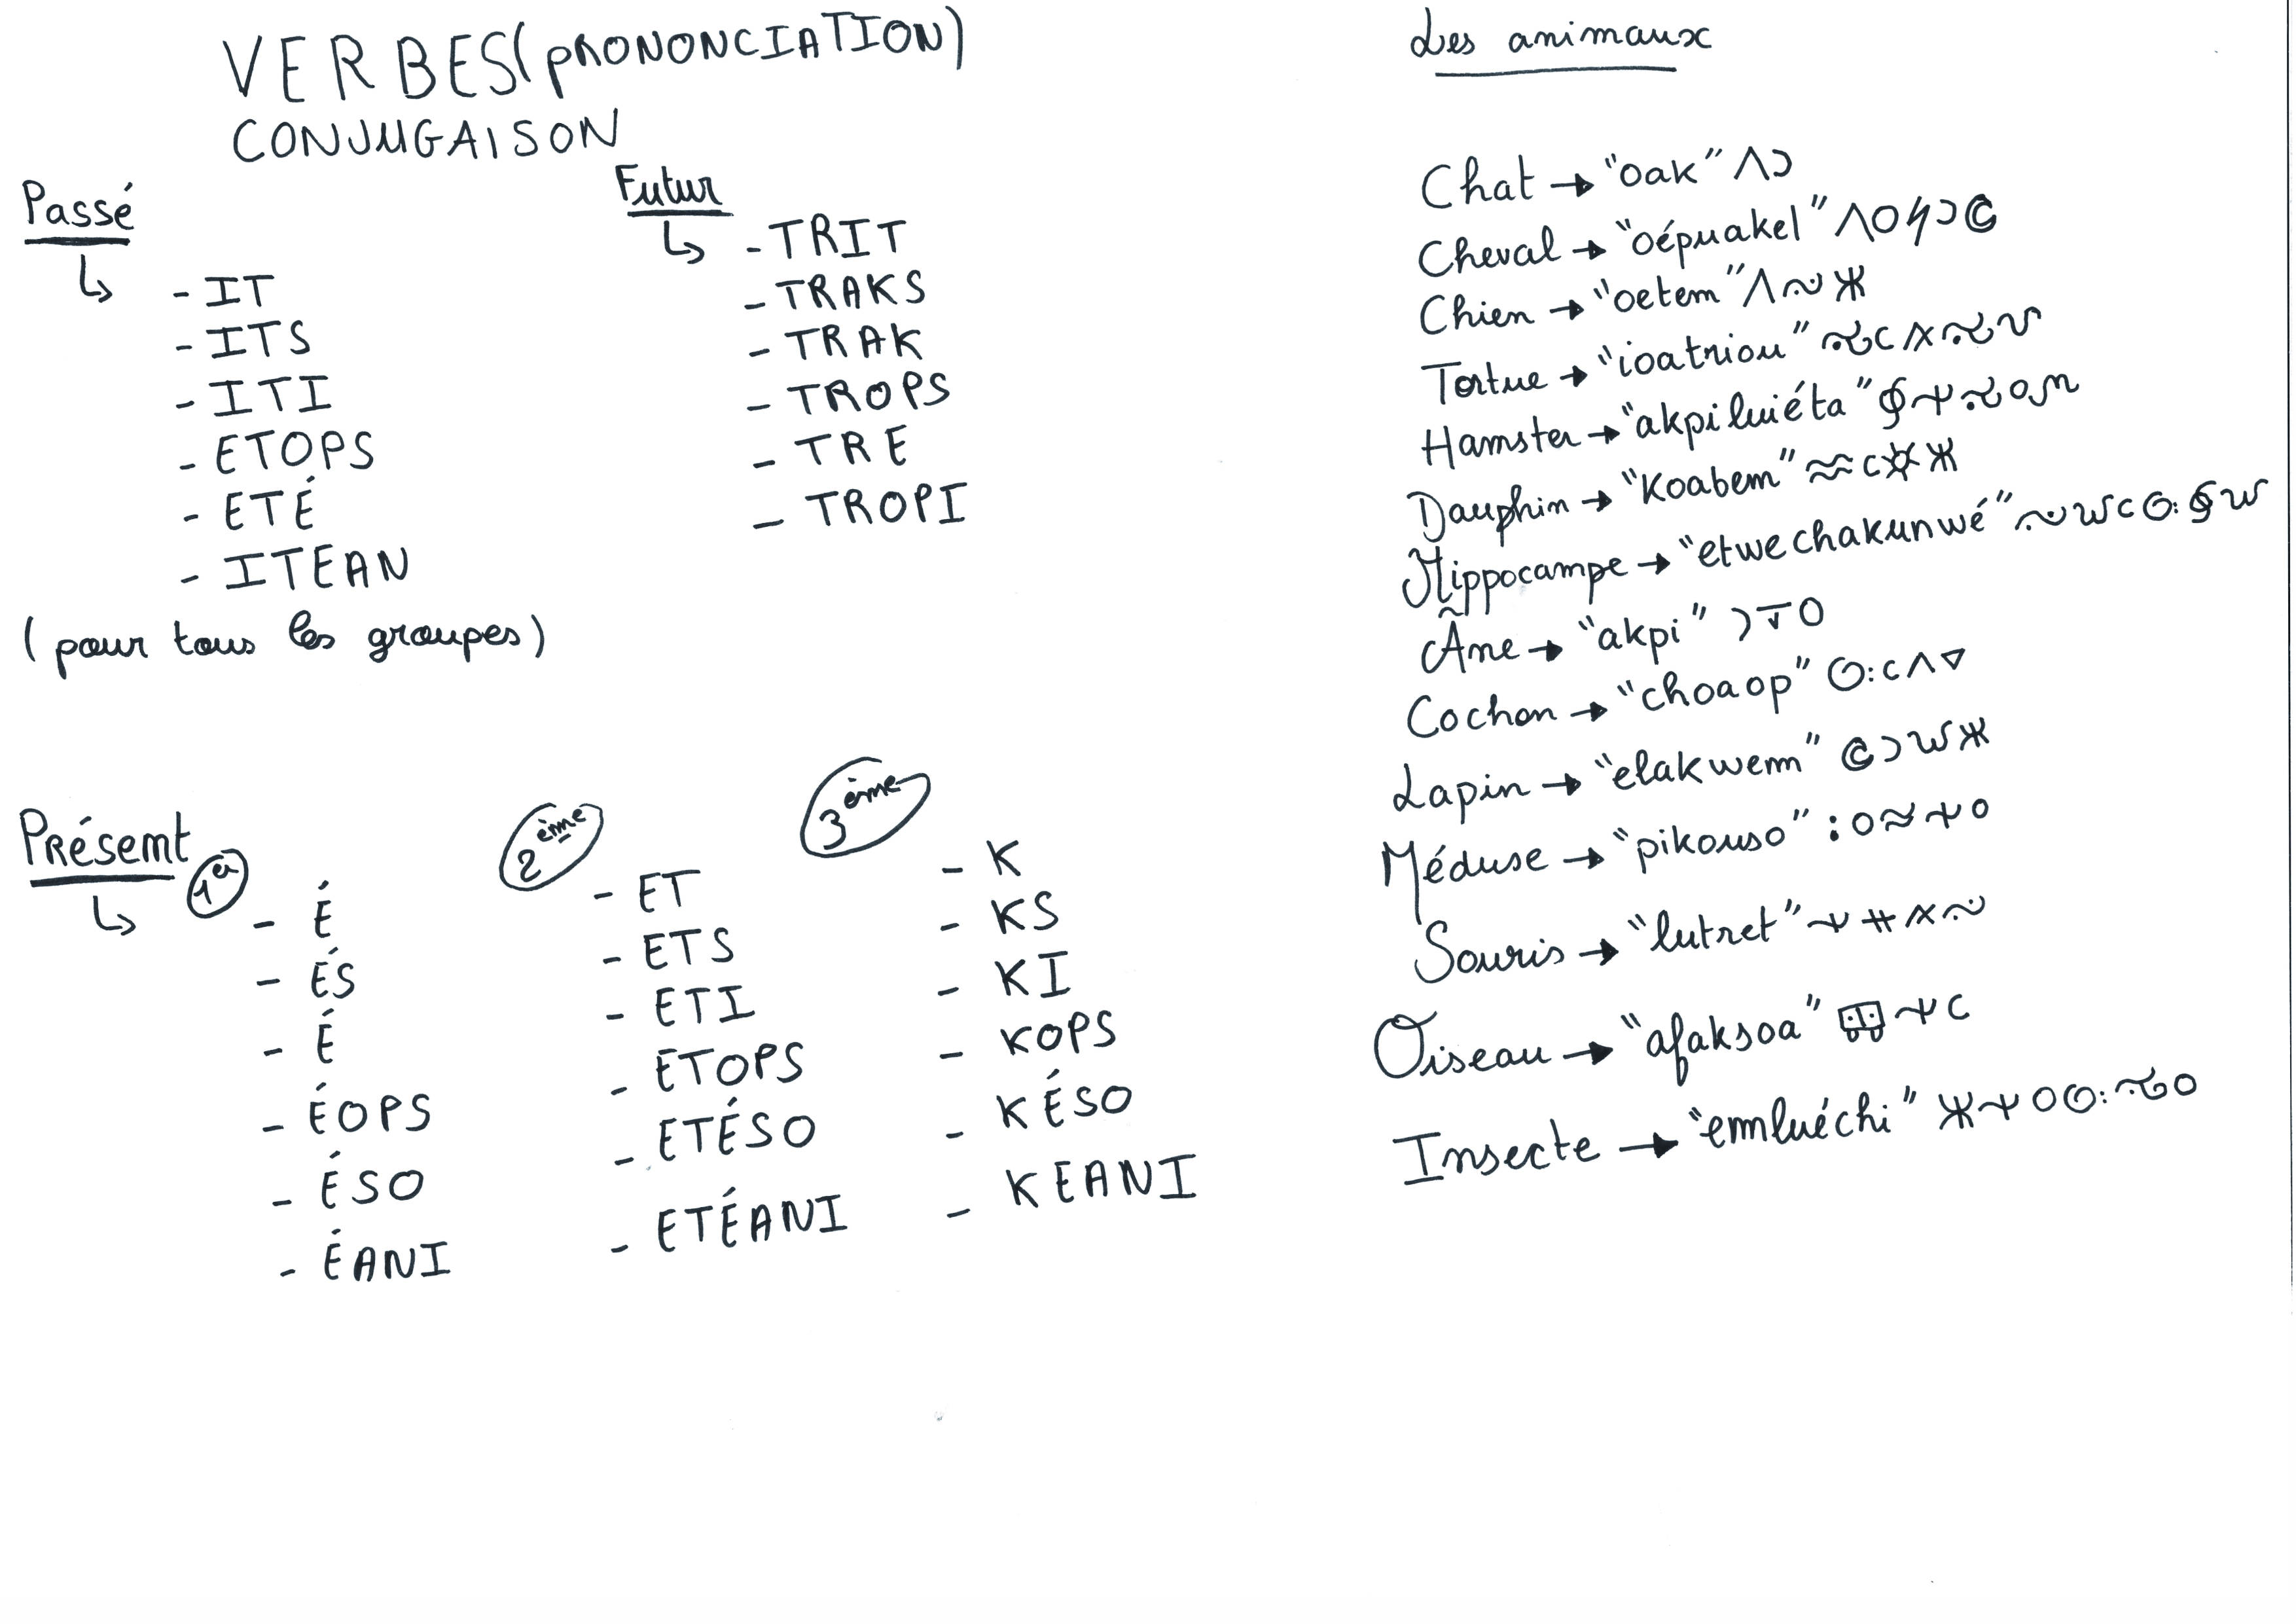 VERBES (PRONONCIATION)
CONJUGAISON
Passé
- IT
- ITS
- ITI
- ETOPS
- ETÉ
- ITEAN
(pour tous les groupes)
Futur
- TRIT
- TRAKS
- TRAK
- TROPS
- TRE
- TROPI
Présent
1er
- É
- ÉS
- É
- ÉOPS
- ÉSO
- ÉANI
2ème
- ET
- ETS
- ETI
- ETOPS
- ETÉSO
- ETÉANI
3ème
- K
- KS
- KI
- KOPS
- KÉSO
- KEANI
Les animaux
Chat → "oak"
Cheval → "oépuakel"
Chien → "oetem"
Tortue → "ioatriou"
Hamster → "akpiluiéta"
Dauphin → "koabem"
Hippocampe → "etwechakunwé"
Âne → "akpi"
Cochon → "choaop"
Lapin → "elakwem"
Méduse → "pikouso"
Souris → "lutret"
Oiseau → "afaksoa"
Insecte → "emluéchi"